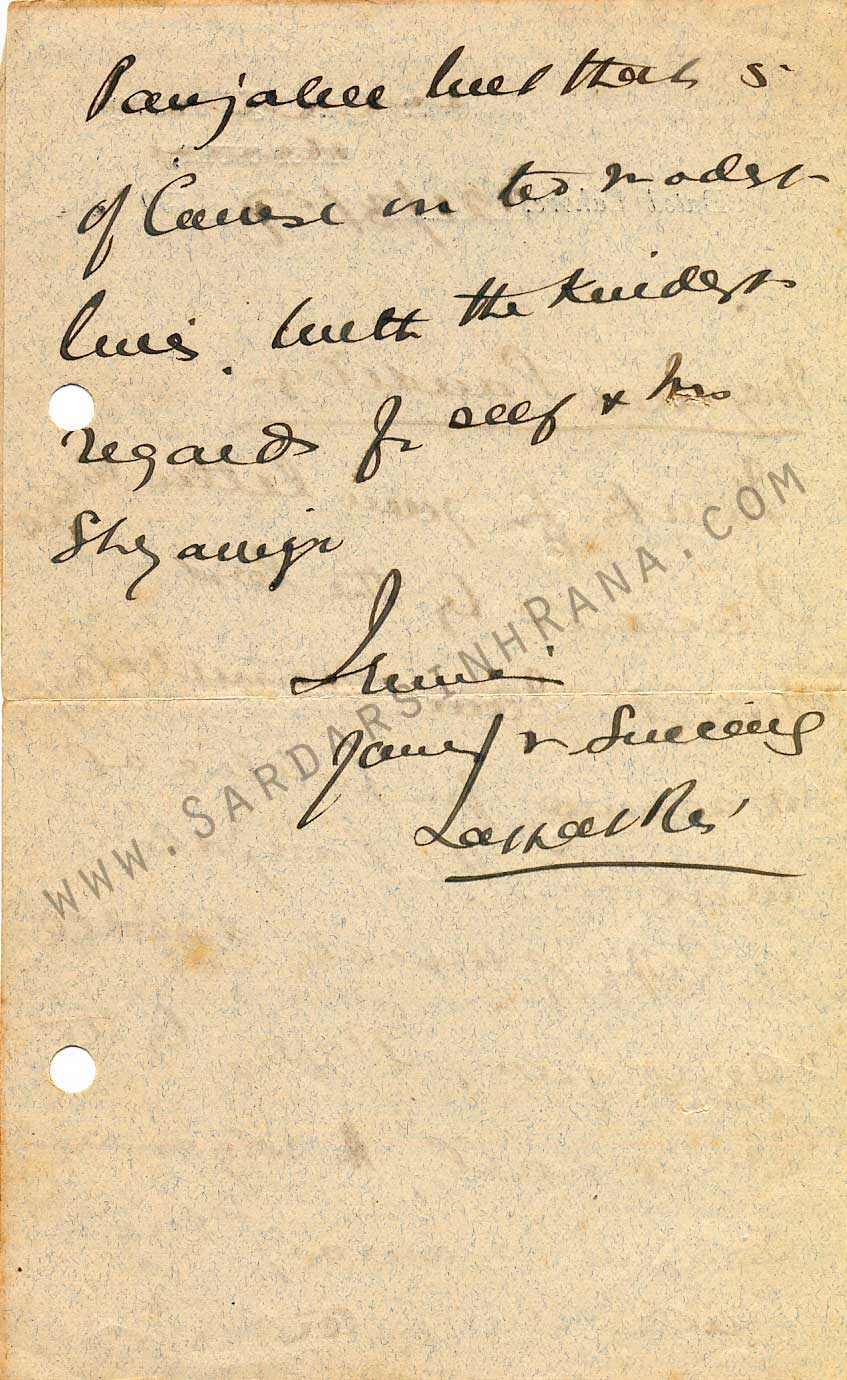 Panjabee but that is
of Course on too modest
lines. With the Kindest
regards for self & Mrs
Shyamji
I remain
Yours v Sincerely
Lajpat Rai
www.SARDARSINHRANA.COM